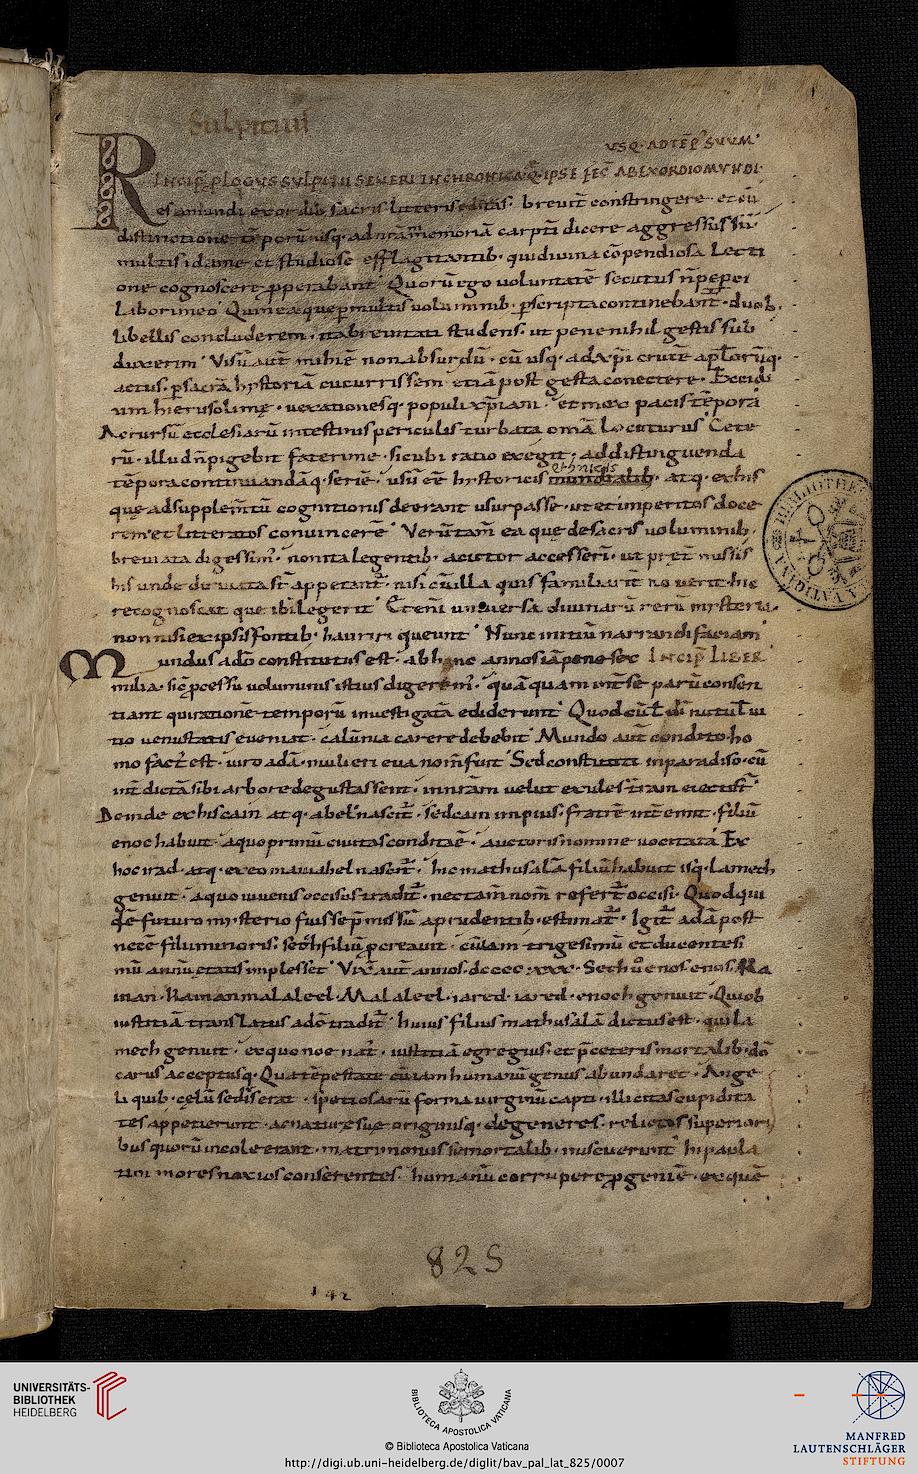 Sulpitius
USQ· AD TĒP' SUUM·
INCIP̄ P̱LOGUS SULPITII SEVERI IN CHRONICA Q̄· IPSE FEC̄ AB EXORDIO MUNDI·
Res a mundi exordio sacris litteris editas· breuit̄ constringere· et cū
distinctione tēporū usq· ad nr̄am memoriā carptī dicere aggressus sū·
multis id a me et studiose efflagitantib· qui diuina cōpendiosa lecti
one cognoscere p̱perabant· Quorū ego voluntatē secutus n̄ peperci
labori meo· Quin ea que p̱ multis voluminib· p̱scripta continebant̄· duob·
libellis concluderem· ita breuitati studens· ut pene nihil gestis sub
duxerim· Visū aut̄ mihi ē non absurdū· cū usq· ad xp̄i crucē ap̄l̄orūq·
actus· p̱ sacrā hystoriā cucurrissem· etiā post gesta conectere· Excidi
um hierusolimę· uexationesq· populi xp̄iani· et mox pacis tēpora
Ac rursū ecclesiarū intestinis periculis turbata om̄ia locuturus· Cete
rū· illud n̄ pigebit fateri me· sicubi ratio exegit· ad distinguenda
ethnicis
tēpora continuandāq· seriē· usū ēē hystoricis mundialib· atq· ex his
quę ad supplem̄tū cognitionis deerant usurpasse· ut et imperitos doce
rem· et litteratos conuincerē· Verūtam̄ ea quę de sacris voluminib·
breuiata digessim'· non ita legentib· auctor accesseri· ut pretm̄issis
his unde deriuata st̄ appetant̄· nisi cū illa quis familiarit̄ nouerit· hic
recognoscat que ibi legerit· Etenī uniuersa diuinarū rerū mysteria·
non nisi ex ipsis fontib· hauriri queunt· Nunc initiū narrandi faciam·
Mundus a dō constitutus est· ab hinc annos iā pene sex INCIP̄ LIBER·
milia· sic̄ p̱cessu voluminis istius digerem'· quāquam int̄ se parū consen
tiant qui rationē temporū inuestigatā ediderunt· Quod cū l̄ di nutu l̄ ui
tio uetustatis eueniat· calūnia carere debebit· Mundo aut̄ condito· ho
mo fact' est· uiro adā· mulieri eua nom̄ fuit· Sed constituti in paradiso· cū
int̄dictā sibi arborē degustassent· in nr̄am velut exules t̄ram eiecti st̄·
Deinde ex his cain atq· abel nascit̄· sed cain impius· fratrē int̄emit· filiū
enoc habuit· a quo primū ciuitas condita ē· auctoris nomine uocitata· Ex
hoc irad· atq· ex eo mauiahel nascit̄· hic mathusalā filiū habuit isq· Lamech
genuit· a quo iuuenis occisus tradit̄· nec tam̄ nom̄ refert̄ occisi· Quod qui
dē futuro mysterio fuisse p̄missū a prudentib· estimat̄· Igit̄ adā post
necē filii minoris· seth filiū p̱creauit· cū iam trigesimū et ducentesi
mū annū etatis implesset· Vix̄ aut̄ annos· dcccc· xxx· Seth ū enos· enos· Ka
inan· Kainan malaleel· Malaleel· iared· iared· enoch genuit· Quē ob
iustitiā translatus a dō tradit̄· huius filius mathusalā dictus est· qui la
mech genuit· ex quo noe nat'· iustitiā egregius· et p̄ ceteris mortalib· dō
carus acceptusq· Qua tēpestate cū iam humanū genus abundaret· Ange
li quib· cęlū sedis erat· spetiosarū forma uirginū capti· illicitas cupidita
tes appetierunt· ac naturę suę originisq· degeneres· relictis superiori
bus quorū incole erant· matrimoniis se mortalib· miscuerunt· hi paula
tim mores noxios conserentes· humanū corrupere p̱geniē· ex quē
825
BIBLIOTHECA
VATICANA
UNIVERSITÄTS-
BIBLIOTHEK
HEIDELBERG
BIBLIOTECA APOSTOLICA VATICANA
© Biblioteca Apostolica Vaticana
http://digi.ub.uni-heidelberg.de/diglit/bav_pal_lat_825/0007
MANFRED
LAUTENSCHLÄGER
STIFTUNG